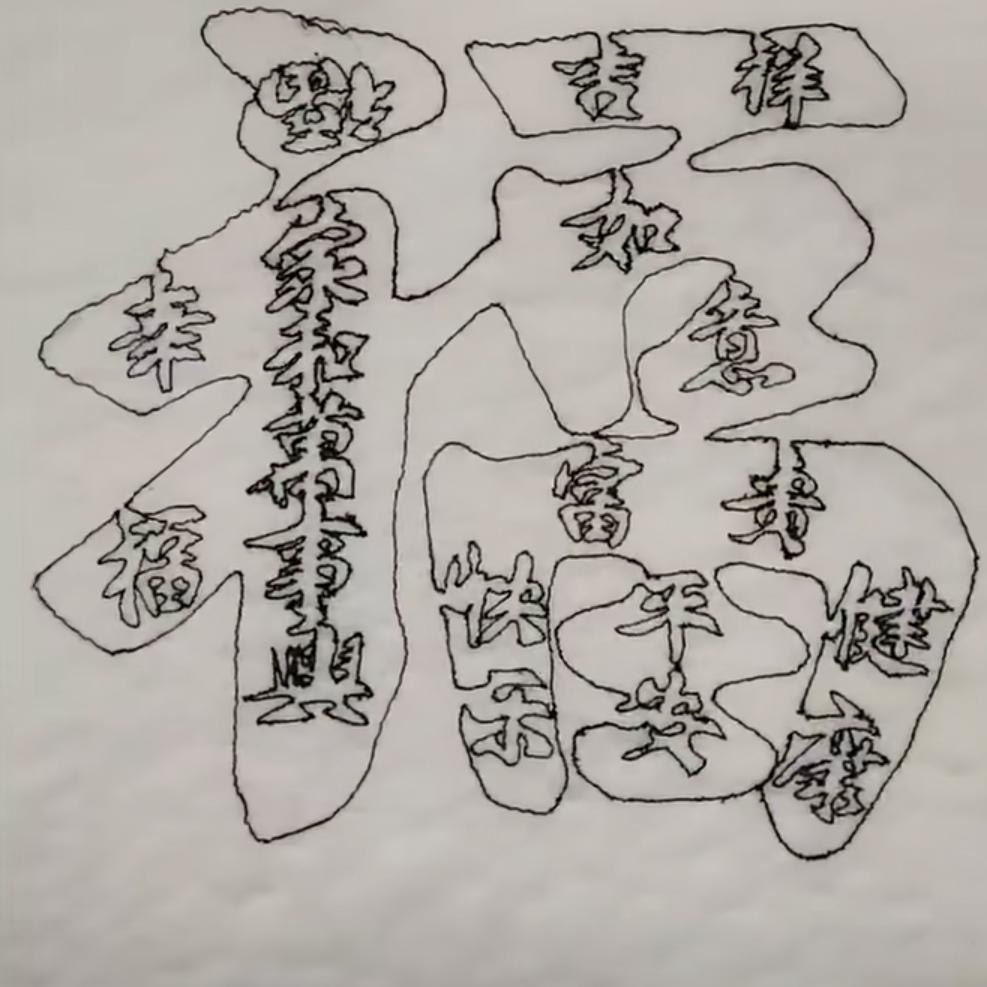 福
吉祥
如意
幸福
家和萬事興
富貴
快乐
平安
健康